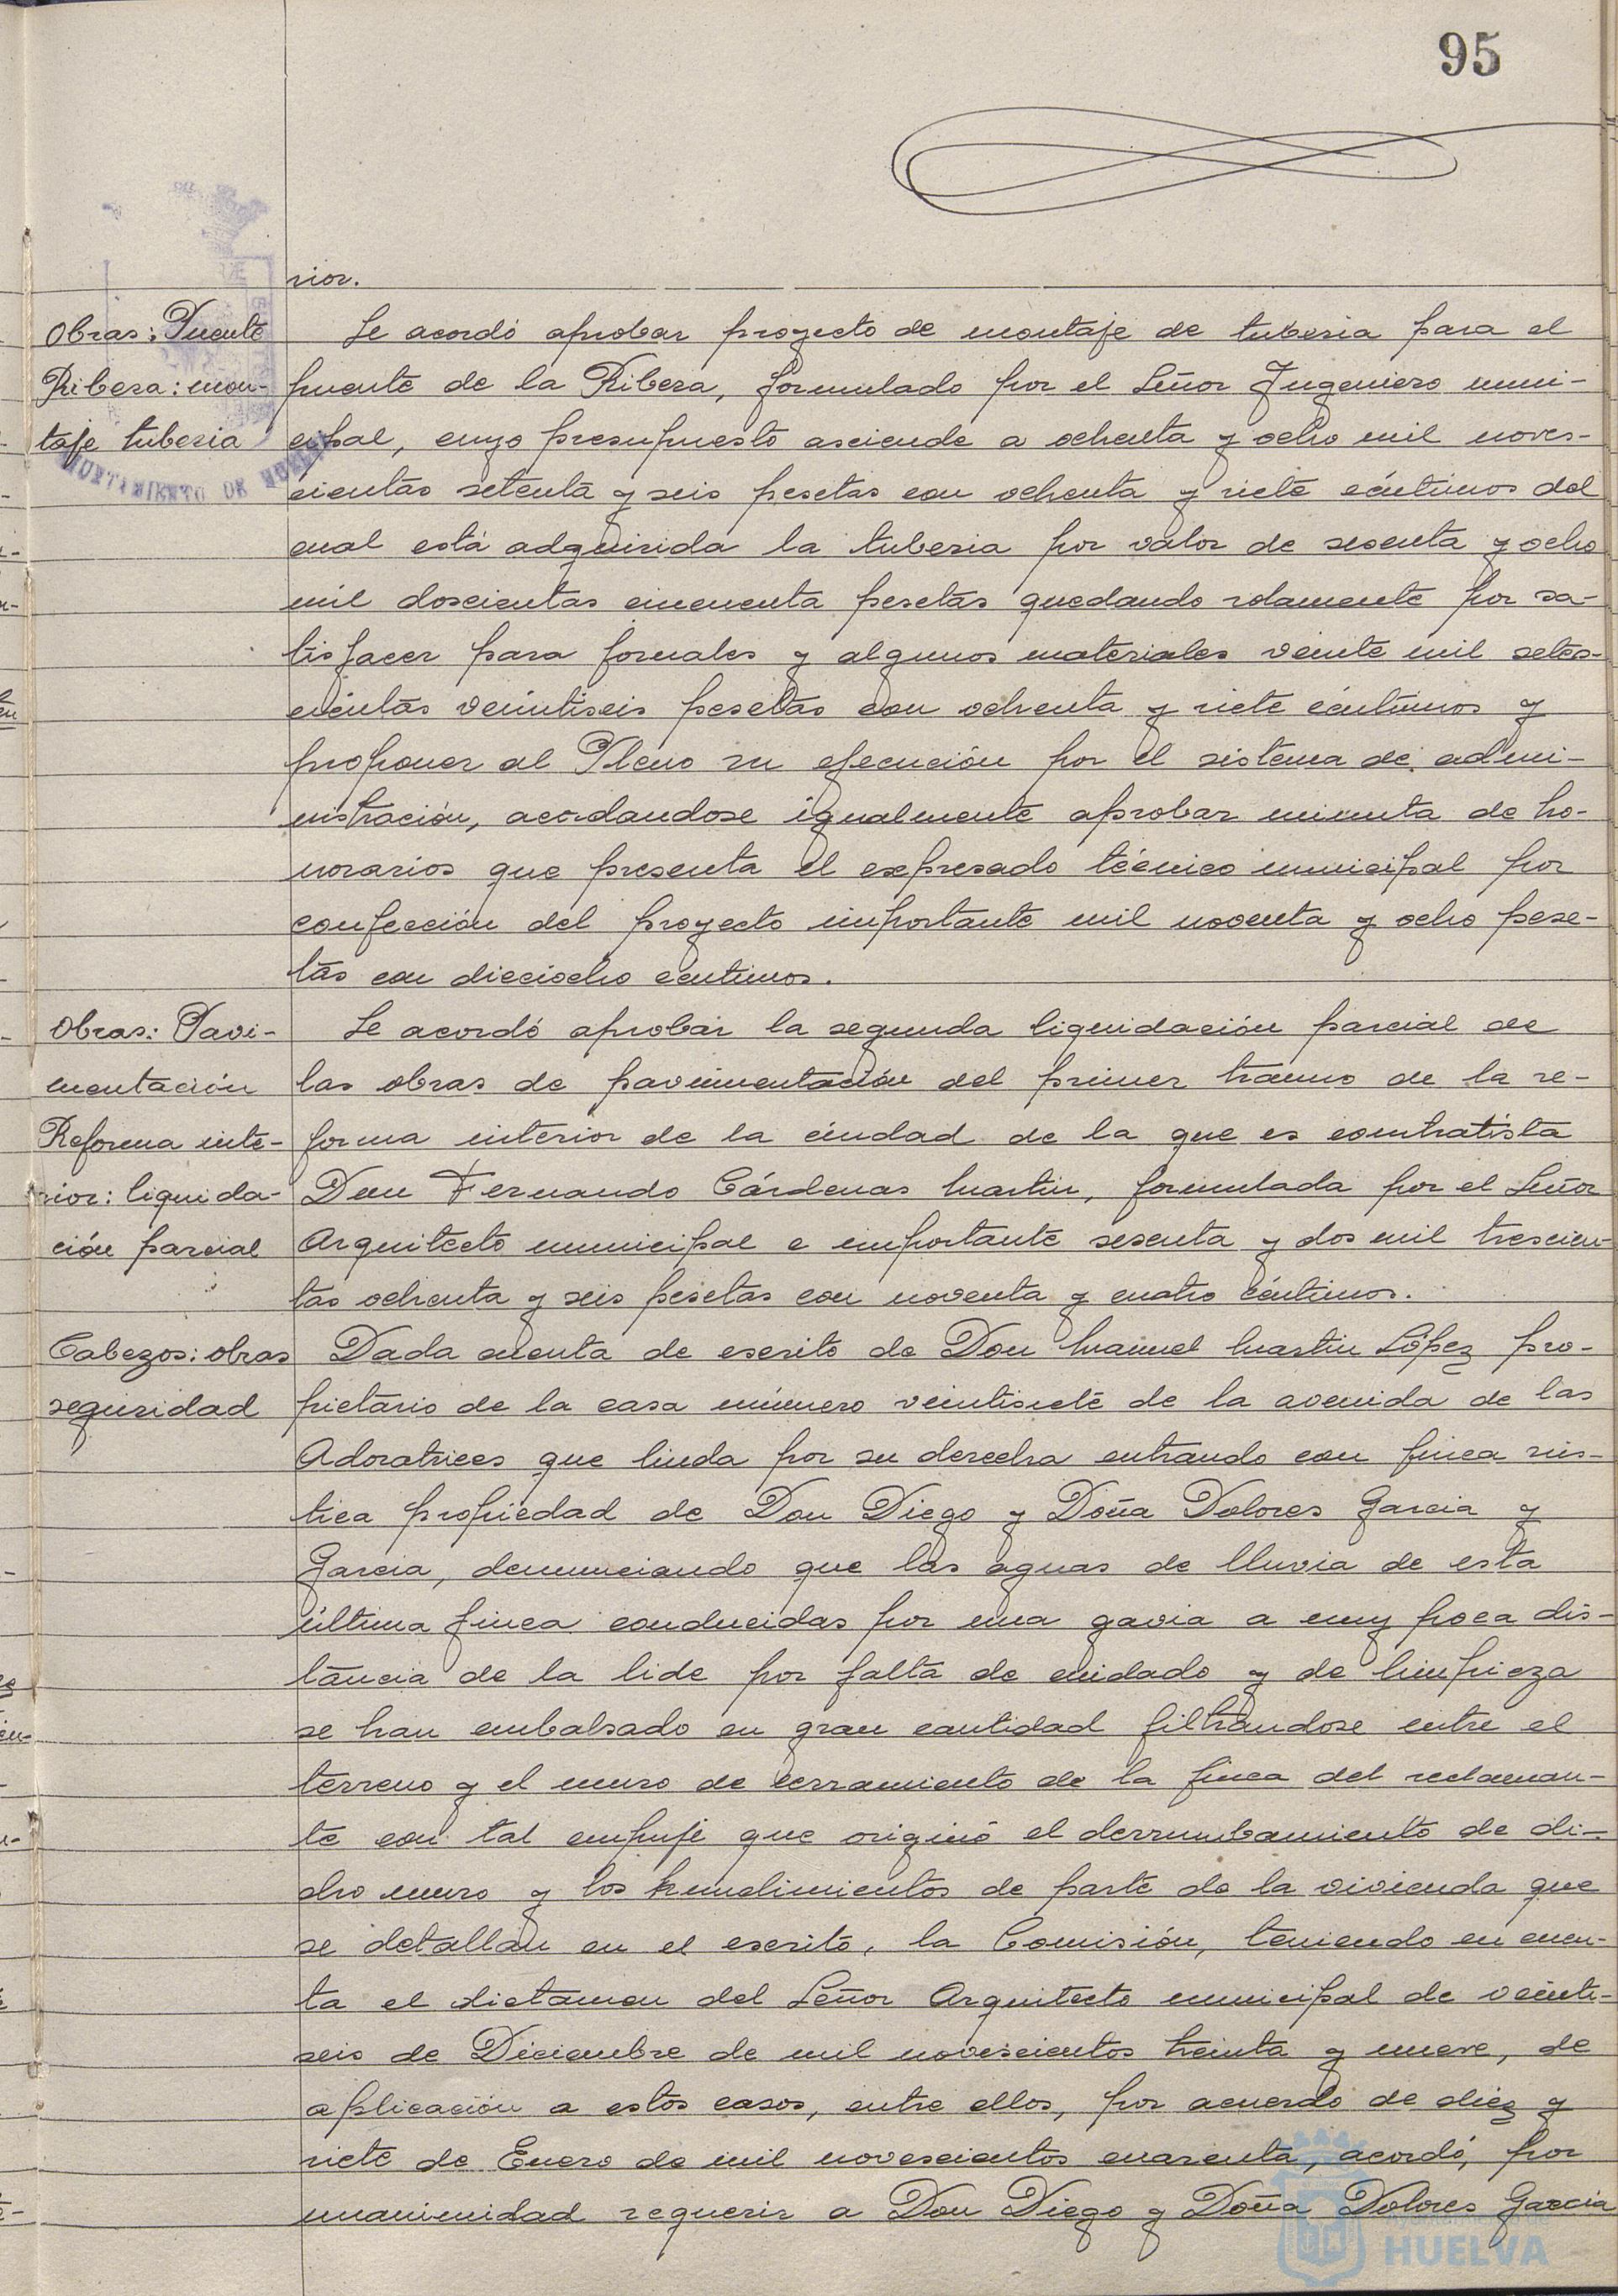 95
rior.
Obras: Puente
Ribera: mon-
taje tuberia
Se acordó aprobar proyecto de montaje de tuberia para el
puente de la Ribera, formulado por el Señor Ingeniero muni-
cipal, cuyo presupuesto asciende a ochenta y ocho mil noves-
cientas setenta y seis pesetas con ochenta y siete céntimos del
cual está adquirida la tuberia por valor de sesenta y ocho
mil doscientas cincuenta pesetas quedando solamente por sa-
tisfacer para jornales y algunos materiales veinte mil setes-
cientas veintiseis pesetas con ochenta y siete céntimos y
proponer al Pleno su ejecución por el sistema de admi-
nistración, acordandose igualmente aprobar minuta de ho-
norarios que presenta el expresado técnico municipal por
confección del proyecto importante mil noventa y ocho pese-
tas con dieciocho centimos.
Obras: Pavi-
mentación
Reforma inte-
rior: liquida-
ción parcial
Se acordó aprobar la segunda liquidación parcial de
las obras de pavimentación del primer tramo de la re-
forma interior de la ciudad de la que es contratista
Don Fernando Cárdenas Martin, formulada por el Señor
Arquitecto municipal e importante sesenta y dos mil trescien-
tas ochenta y seis pesetas con noventa y cuatro céntimos.
Cabezos: obras
seguridad
Dada cuenta de escrito de Don Manuel Martin López pro-
pietario de la casa número veintisiete de la avenida de las
Adoratrices que linda por su derecha entrando con finca rus-
tica propiedad de Don Diego y Doña Dolores Garcia y
Garcia, denunciando que las aguas de lluvia de esta
última finca conducidas por una gavia a muy poca dis-
tancia de la lide por falta de cuidado y de limpieza
se han embalsado en gran cantidad filtrandose entre el
terreno y el muro de cerramiento de la finca del reclaman-
te con tal empuje que originó el derrumbamiento de di-
cho muro y los hundimientos de parte de la vivienda que
se detallan en el escrito, la Comisión, teniendo en cuen-
ta el dictamen del Señor Arquitecto municipal de veinti-
seis de Diciembre de mil novescientos treinta y nueve, de
aplicación a estos casos, entre ellos, por acuerdo de diez y
siete de Enero de mil novescientos cuarenta, acordó, por
unanimidad requerir a Don Diego y Doña Dolores Garcia
AYUNTAMIENTO DE HUELVA
HUELVA